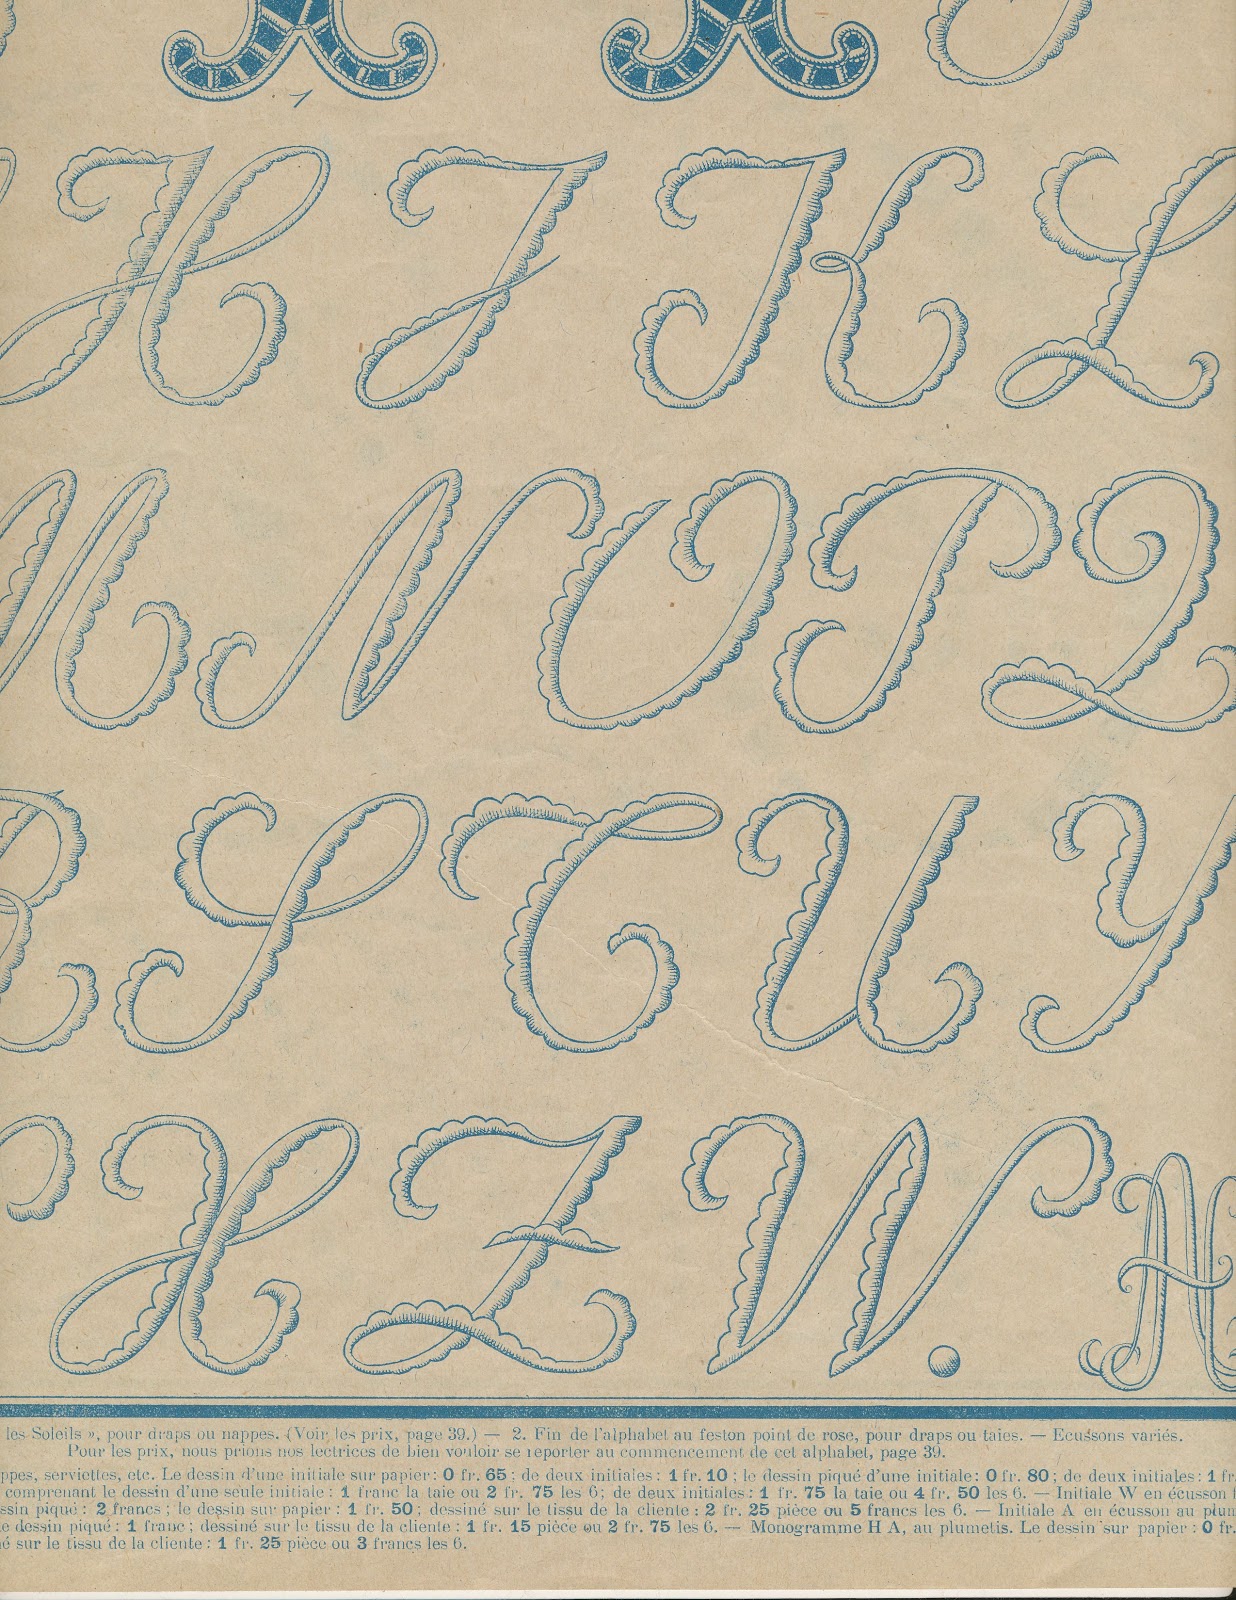 1
H J K L
M N O P Q
R S T U Y
X Z W. HA
les Soleils », pour draps ou nappes. (Voir les prix, page 39.) — 2. Fin de l'alphabet au feston point de rose, pour draps ou taies. — Ecussons variés.
Pour les prix, nous prions nos lectrices de bien vouloir se reporter au commencement de cet alphabet, page 39.
ppes, serviettes, etc. Le dessin d'une initiale sur papier : 0 fr. 65 ; de deux initiales : 1 fr. 10 ; le dessin piqué d'une initiale : 0 fr. 80 ; de deux initiales : 1 fr
comprenant le dessin d'une seule initiale : 1 franc la taie ou 2 fr. 75 les 6 ; de deux initiales : 1 fr. 75 la taie ou 4 fr. 50 les 6. — Initiale W en écusson
ssin piqué : 2 francs ; le dessin sur papier : 1 fr. 50 ; dessiné sur le tissu de la cliente : 2 fr. 25 pièce ou 5 francs les 6. — Initiale A en écusson au plum
e dessin piqué : 1 franc ; dessiné sur le tissu de la cliente : 1 fr. 15 pièce ou 2 fr. 75 les 6. — Monogramme H A, au plumetis. Le dessin sur papier : 0 fr.
é sur le tissu de la cliente : 1 fr. 25 pièce ou 3 francs les 6.